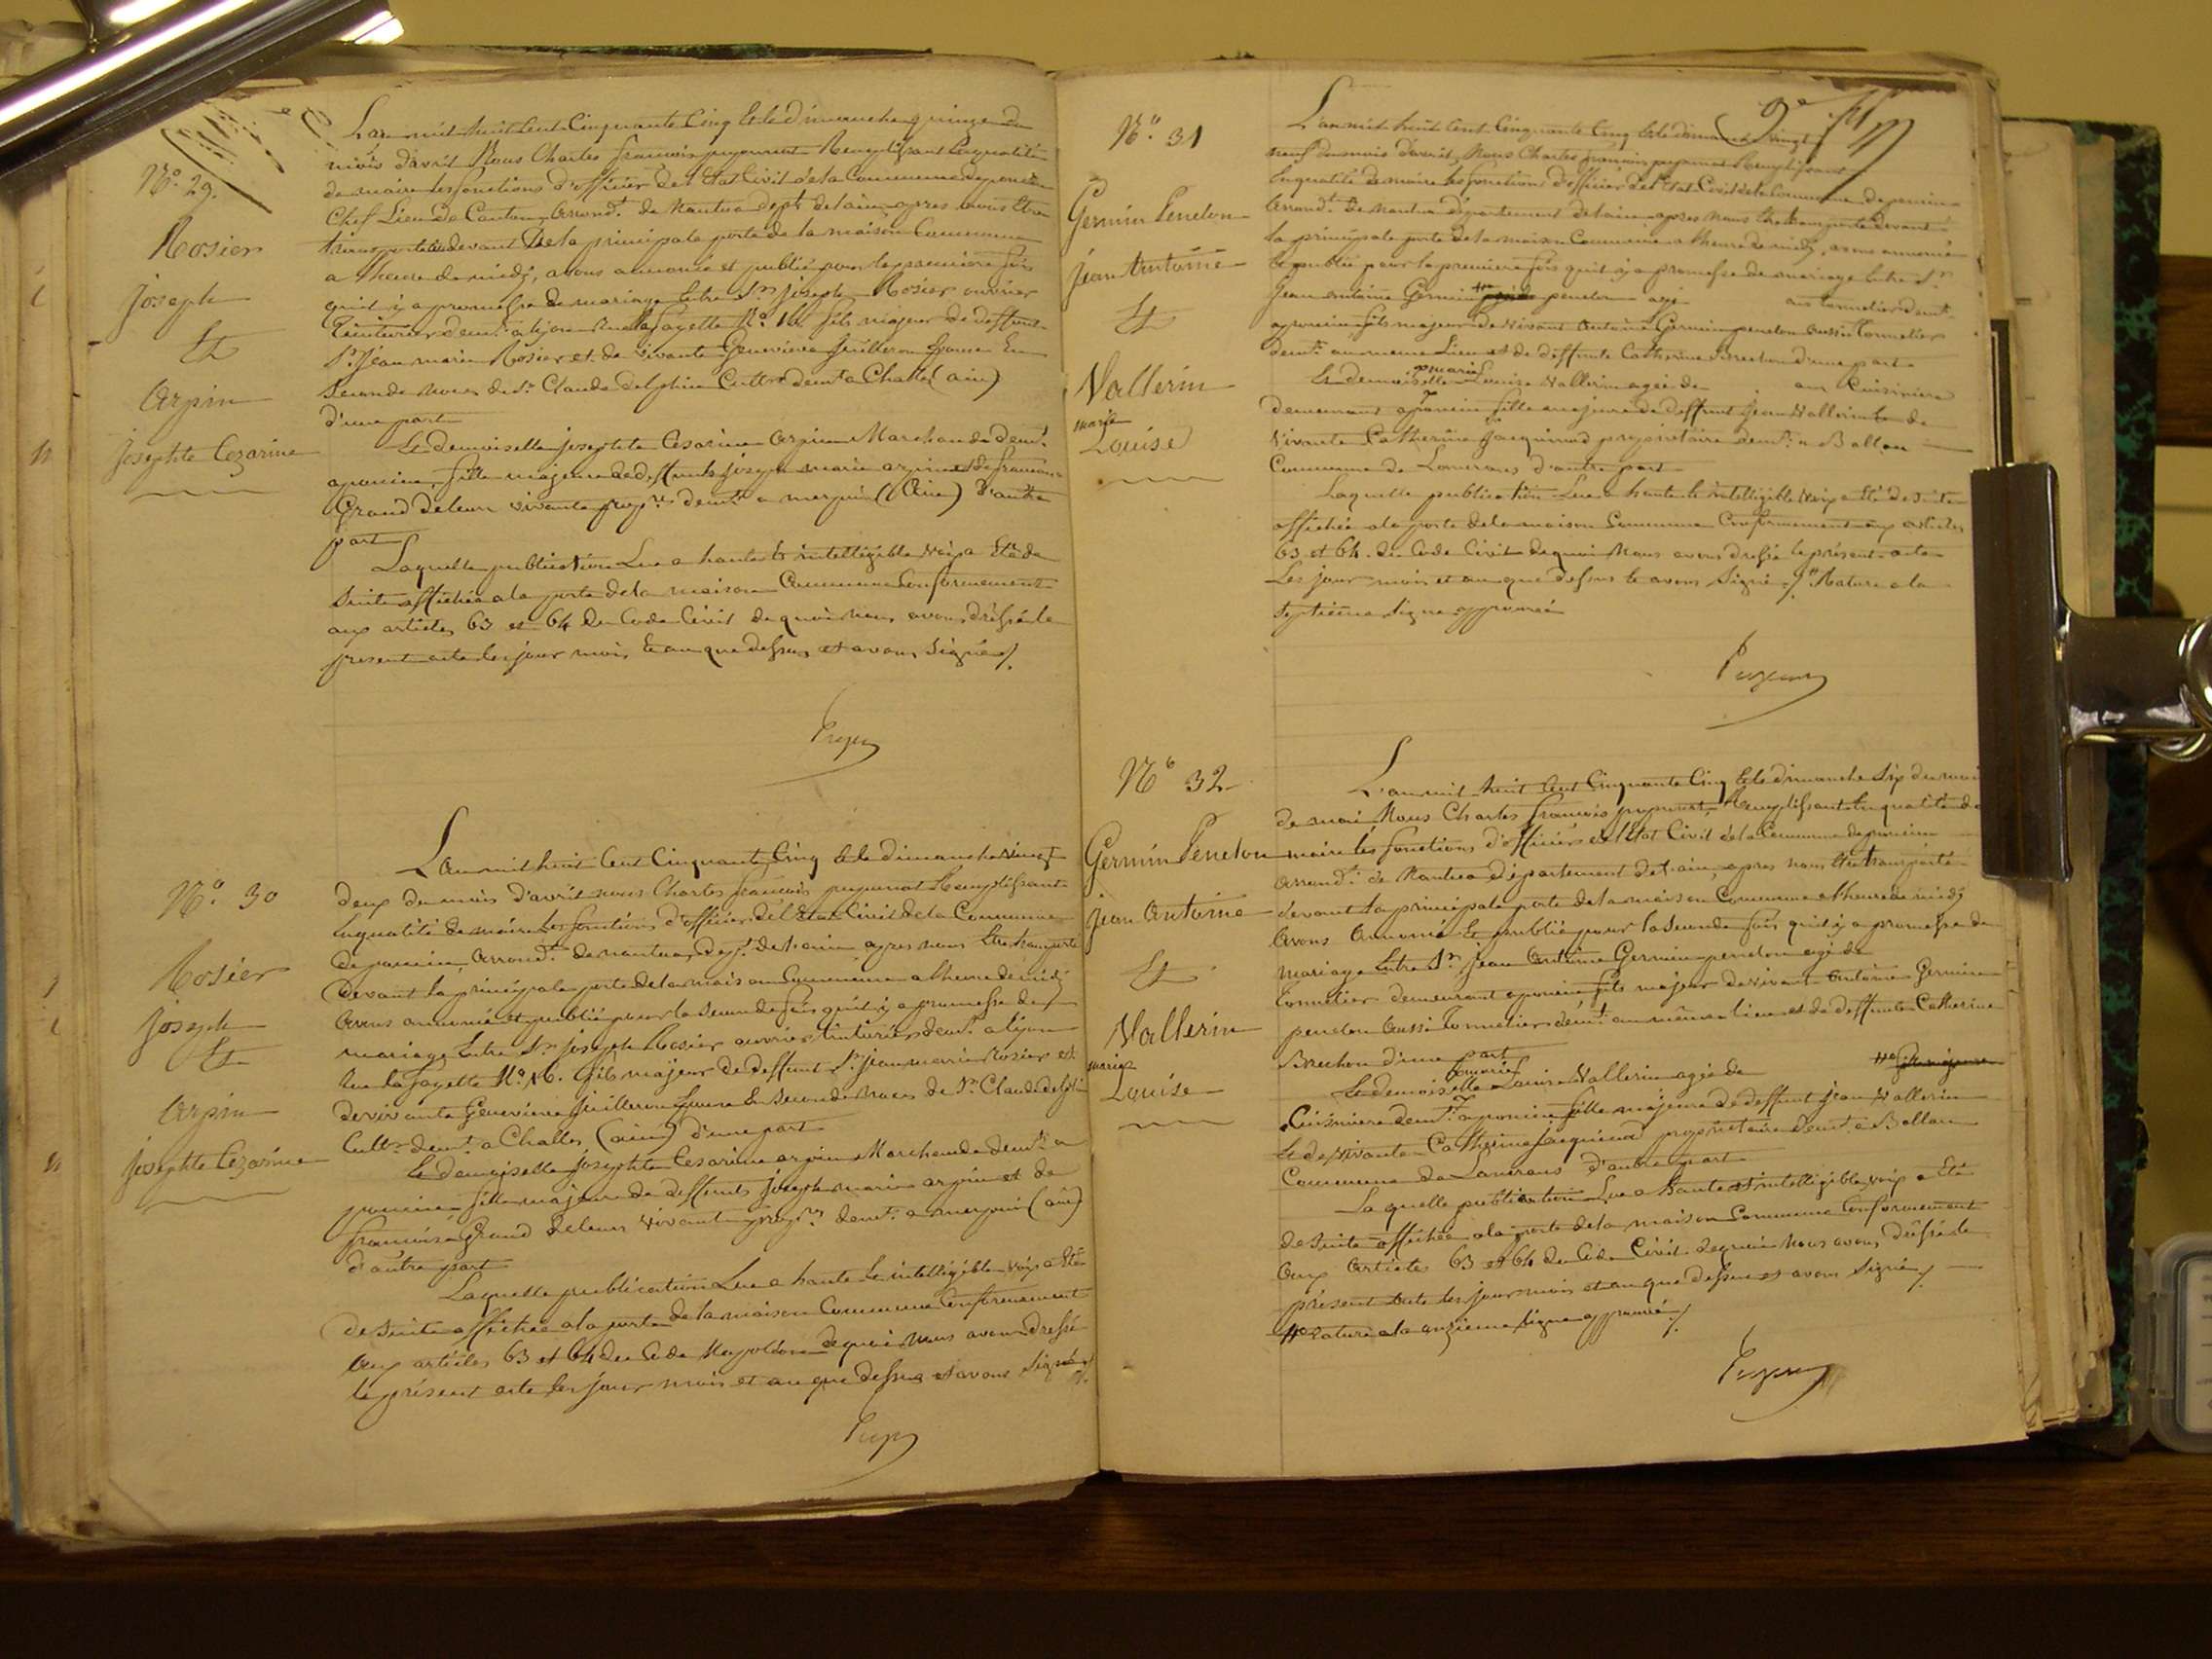 N.° 29.
Rosier
Joseph
Et
Arpin
Josephte Cezarine
L'an mil huit Cent Cinquante Cinq Et le dimanche quinze du
mois d'avril Nous Charles francois Remplissant En qualité
de maire les fonctions d'officier de l'Etat Civil de la Commune de poncin
Chef Lieu De Canton, arrond.t de Nantua dept de l'ain, apres nous Etre
transporté devant la principale porte de la maison Commune
a l'heure de midi, avons annoncé et publié pour la premiere fois
qu'il y a promesse de mariage Entre S.r Joseph Rosier ouvrier
teinturier dem.t a lyon Rue la fayette N.° 16. fils majeur de deffunt
S.r Jean marie Rosier et de vivante Genevieve Juilleron Epouse En
seconde noces de S.r Claude Delphin Cult.r dem.t a Challes (ain)
d'une part
Et demoiselle josephte Cesarine Arpin Marchande dem.t
a poncin, fille majeure de deffunts joseph marie arpin et de francoise
Grand de leur vivant prop.res dem.t a (Ain) d'autre
part
Laquelle publication Lue a haute Et intelligible Voix a Eté de
suite affichée a la porte de la maison Commune Conformement
aux articles 63 et 64 du Code Civil de quoi nous avons dressé le
present acte les jour mois Et an que dessus et avons signé ./.
N.° 30
Rosier
Joseph
Et
Arpin
Josephte Cezarine
L'an mil huit Cent Cinquante Cinq Et le dimanche vingt
deux du mois d'avril nous Charles francois Remplissant
En qualité de maire Les fonctions d'officier de l'Etat Civil de la Commune
de poncin, arrond.t de nantua, dep.t de l'ain, apres nous Etre transporté
devant la principale porte de la maison Commune a l'heure de midi
avons annoncé et publié pour la seconde fois qu'il y a promesse de
mariage Entre S.r Joseph Rosier ouvrier tinturier dem.t a lyon
Rue la fayette N.° 16. fils majeur de deffunt S.r jean marie Rosier et
de vivante Genevieve Juilleron Epouse En seconde Noces de S.r Claude Delphin
Cult.r dem.t a Challes (ain) d'une part
Et demoiselle josephte Cesarine arpin Marchande dem.t a
poncin fille majeure de deffunts joseph marie arpin et de
francoise Grand de leur vivant prop.res dem.t a (ain)
d'autre part
Laquelle publication Lue a haute Et intelligible voix a Eté
de suite affichée a la porte de la maison Commune Conformement
Aux articles 63 et 64 du Code Napoléon de quoi nous avons dressé
le présent acte les jour mois et an que dessus et avons signé ./.
9e
N.° 31
Germin Penelon
Jean Antoine
Et
Vallerin
marie
Louise
L'an mil huit Cent Cinquante Cinq Et le dimanche Vingt
neuf du mois d'avril, Nous Charles francois Remplissant
En qualité de maire les fonctions d'officier de l'Etat Civil de la Commune de poncin
Arrond.t de nantua département de l'ain, apres nous Etre transporté devant
la principale porte de la maison Commune a l'heure de midi, avons annoncé
Et publié pour la premiere fois qu'il y a promesse de mariage Entre S.r
Jean Antoine Germin penelon agé ans tonnelier dem.t
a poncin fils majeur de vivant Antoine Germin penelon aussi Tonnelier
dem.t au meme Lieu et de deffunte Catherine Brechon d'une part
Et demoiselle marie Louise Vallerin agée de ans Cuisiniere
demeurant a poncin fille majeure de deffunt Jean Vallerin Et de
vivante Catherine Jacquinod propriétaire dem.t a Ballon
Commune de Lancrans d'autre part
Laquelle publication Lue a haute Et intelligible Voix a Eté de suite
affichée a la porte de la maison Commune Conformement aux articles
63 et 64 du Code Civil de quoi Nous avons dressé le présent acte
Les jour mois et an que dessus Et avons Signé ./. Rature a la
septieme ligne approuvée
N° 32
Germin Penelon
Jean Antoine
Et
Vallerin
marie
Louise
L'an mil huit Cent Cinquante Cinq Et le dimanche Six du mois
de mai Nous Charles francois Remplissant En qualité de
maire les fonctions d'officier de l'Etat Civil de la Commune de poncin
Arrond.t de Nantua département de l'ain, apres nous Etre transporté
devant la principale porte de la maison Commune a l'heure de midi
Avons Annoncé Et publié pour la seconde fois qu'il y a promesse de
mariage Entre S.r Jean Antoine Germin penelon agé de
Tonnelier demeurant a poncin fils majeur de vivant Antoine Germin
penelon Aussi Tonnelier dem.t au même lieu et de deffunte Catherine
Brechon d'une part
Et demoiselle marie Louise Vallerin agée de fille majeure
Cuisiniere dem.t a poncin fille majeure de deffunt Jean Vallerin
Et de vivante Catherine Jacquinod propriétaire dem.t a Ballon
Commune de Lancrans d'autre part
Laquelle publication Lue a haute et intelligible voix a Eté
de suite affichée a la porte de la maison Commune Conformement
Aux Articles 63 et 64 du Code Civil de quoi Nous avons dréssé le
présent acte les jour mois et an que dessus et avons signé ./.
Rature a la onzieme ligne approuvée ./.